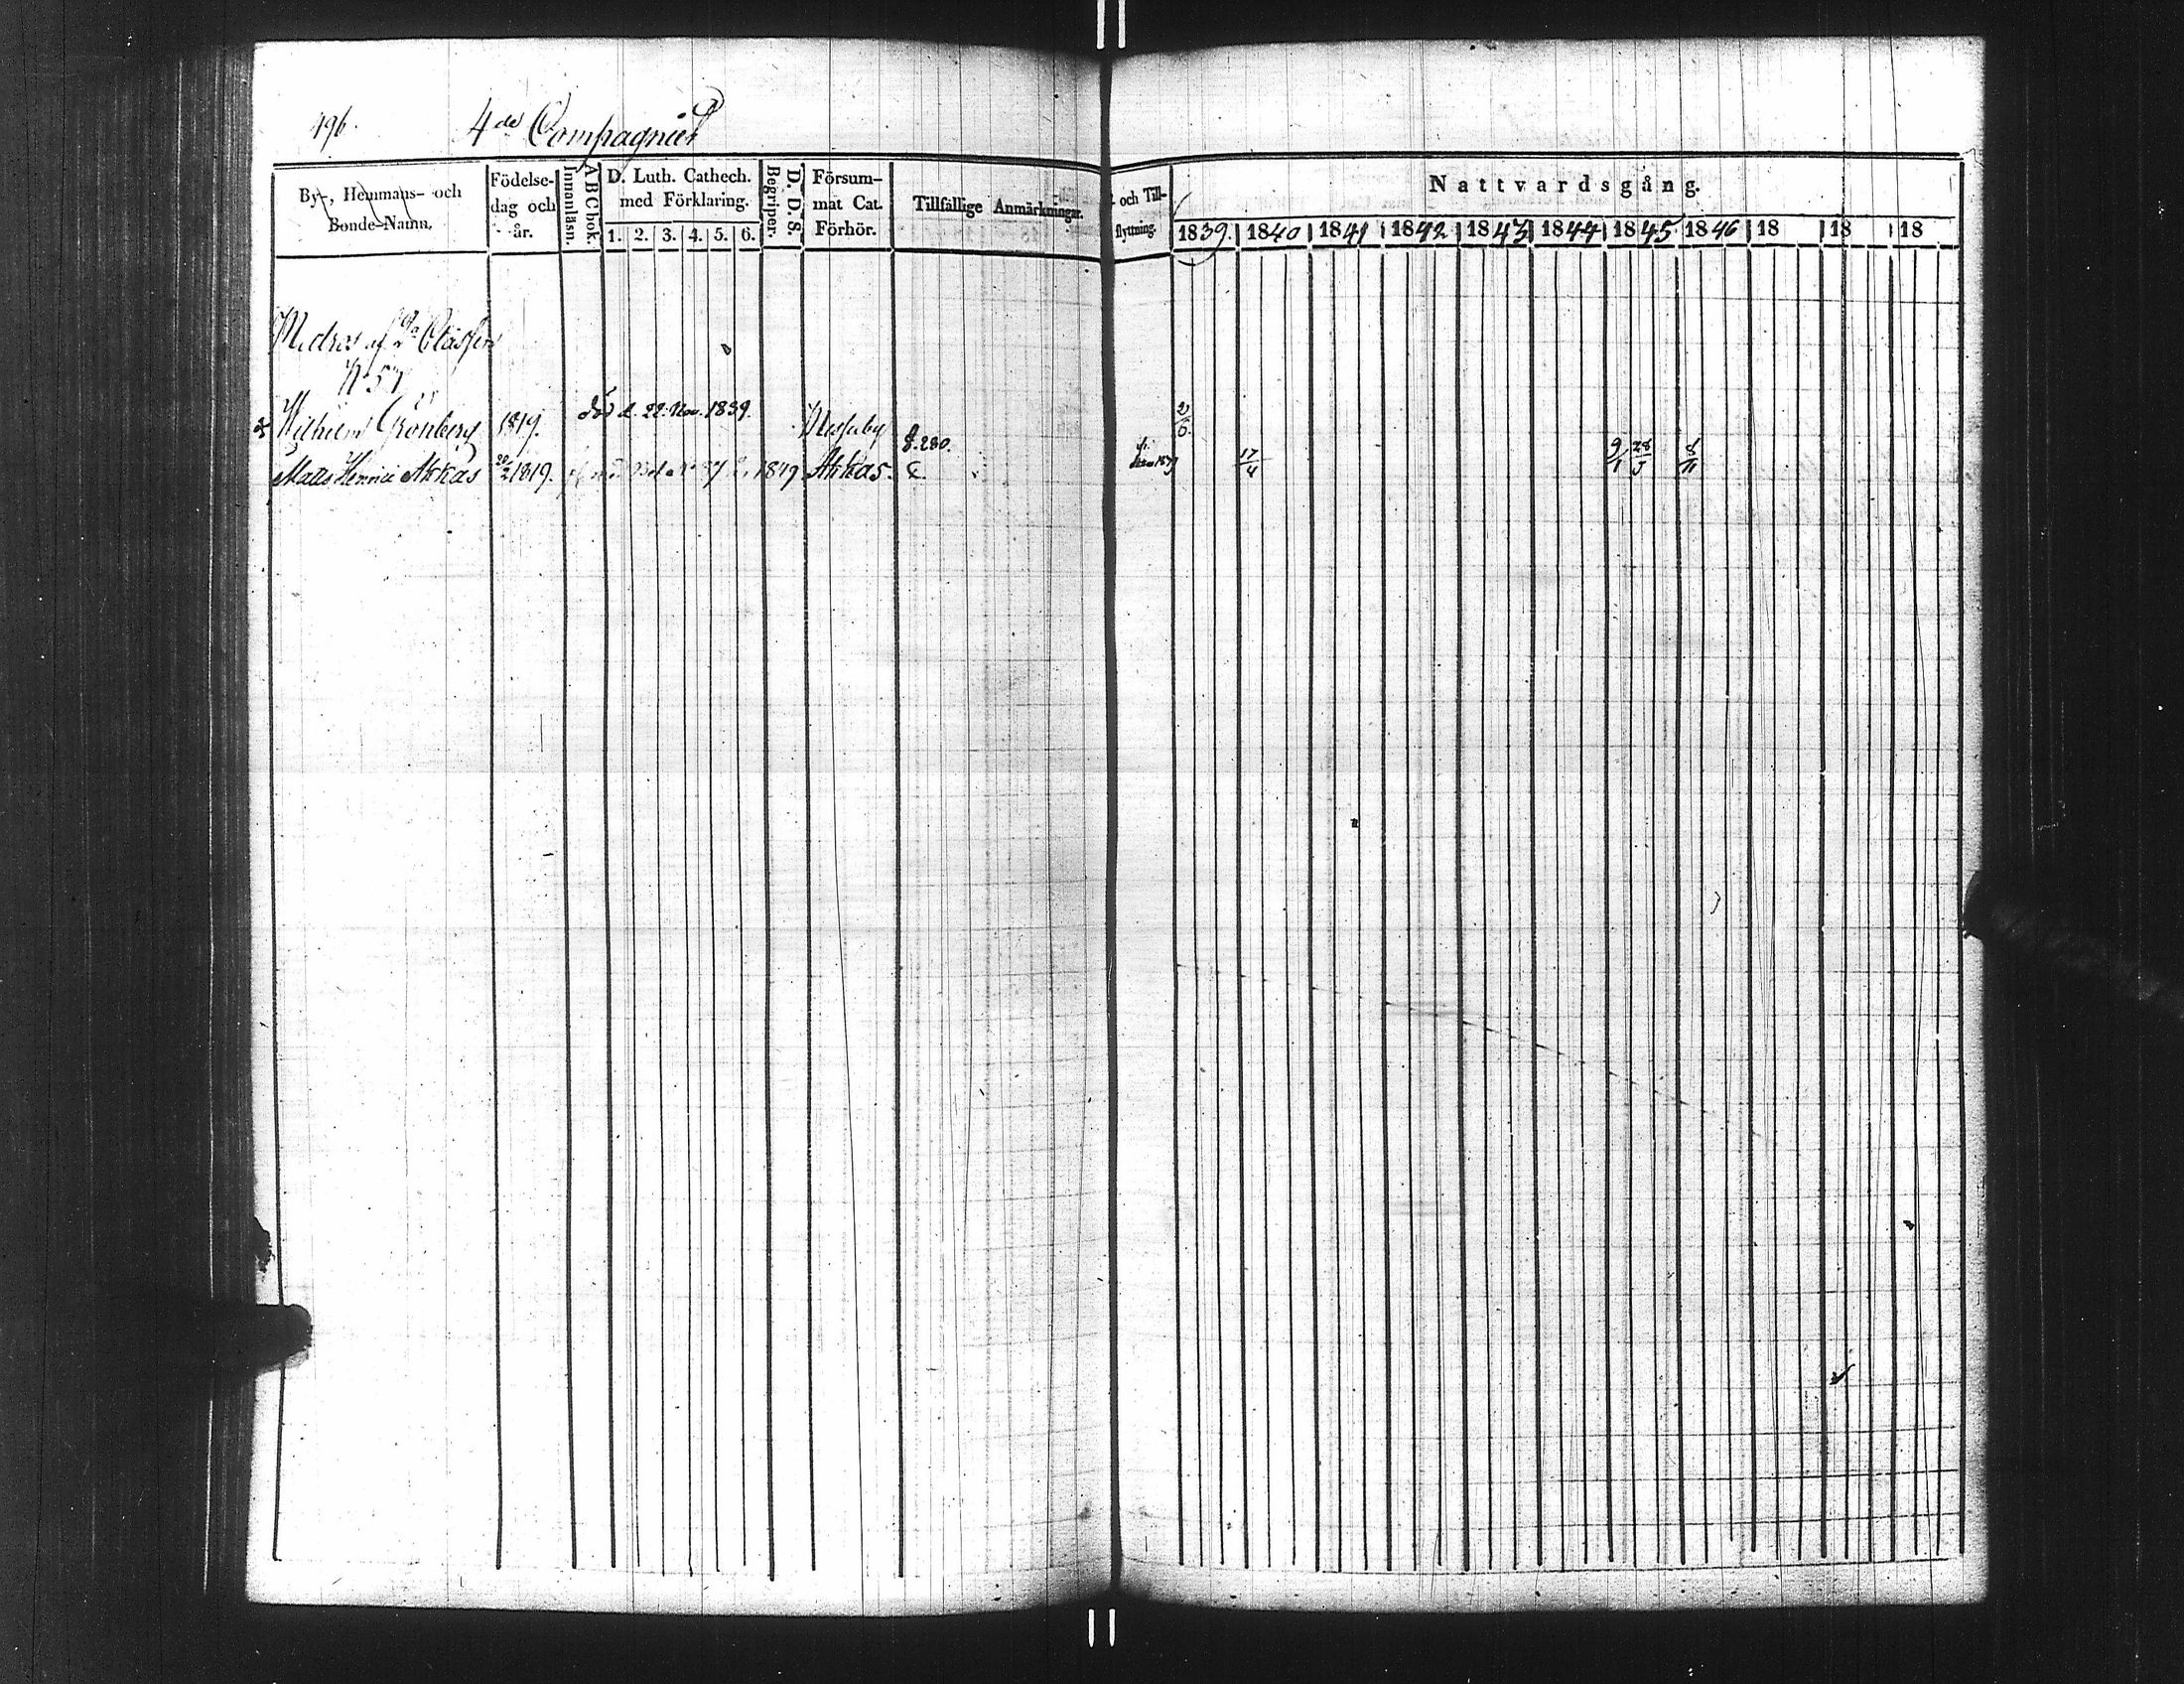 496.
4de Compagniet
By-, Hemmans- och Bonde-Namn.
Födelse-dag och år.
Innanläsn.
A B C bok.
D. Luth. Cathech. med Förklaring.
1. 2. 3. 4. 5. 6.
Begriper.
D. D. S.
Försum-mat Cat. Förhör.
Tillfällige Anmärkningar.
och Till-flyttning.
Nattvardsgång.
1839. 1840 1841 1842 1843 1844 1845 1846 18 18 18
af Classen
N 57
Wilhelm Grönberg 1819. död d. 22. Nov. 1839. 2/6.
Matts Henric Akkas 20/2 1819. 1849 Akkas. f. 280. 17/4 9/1 28/5 8/11